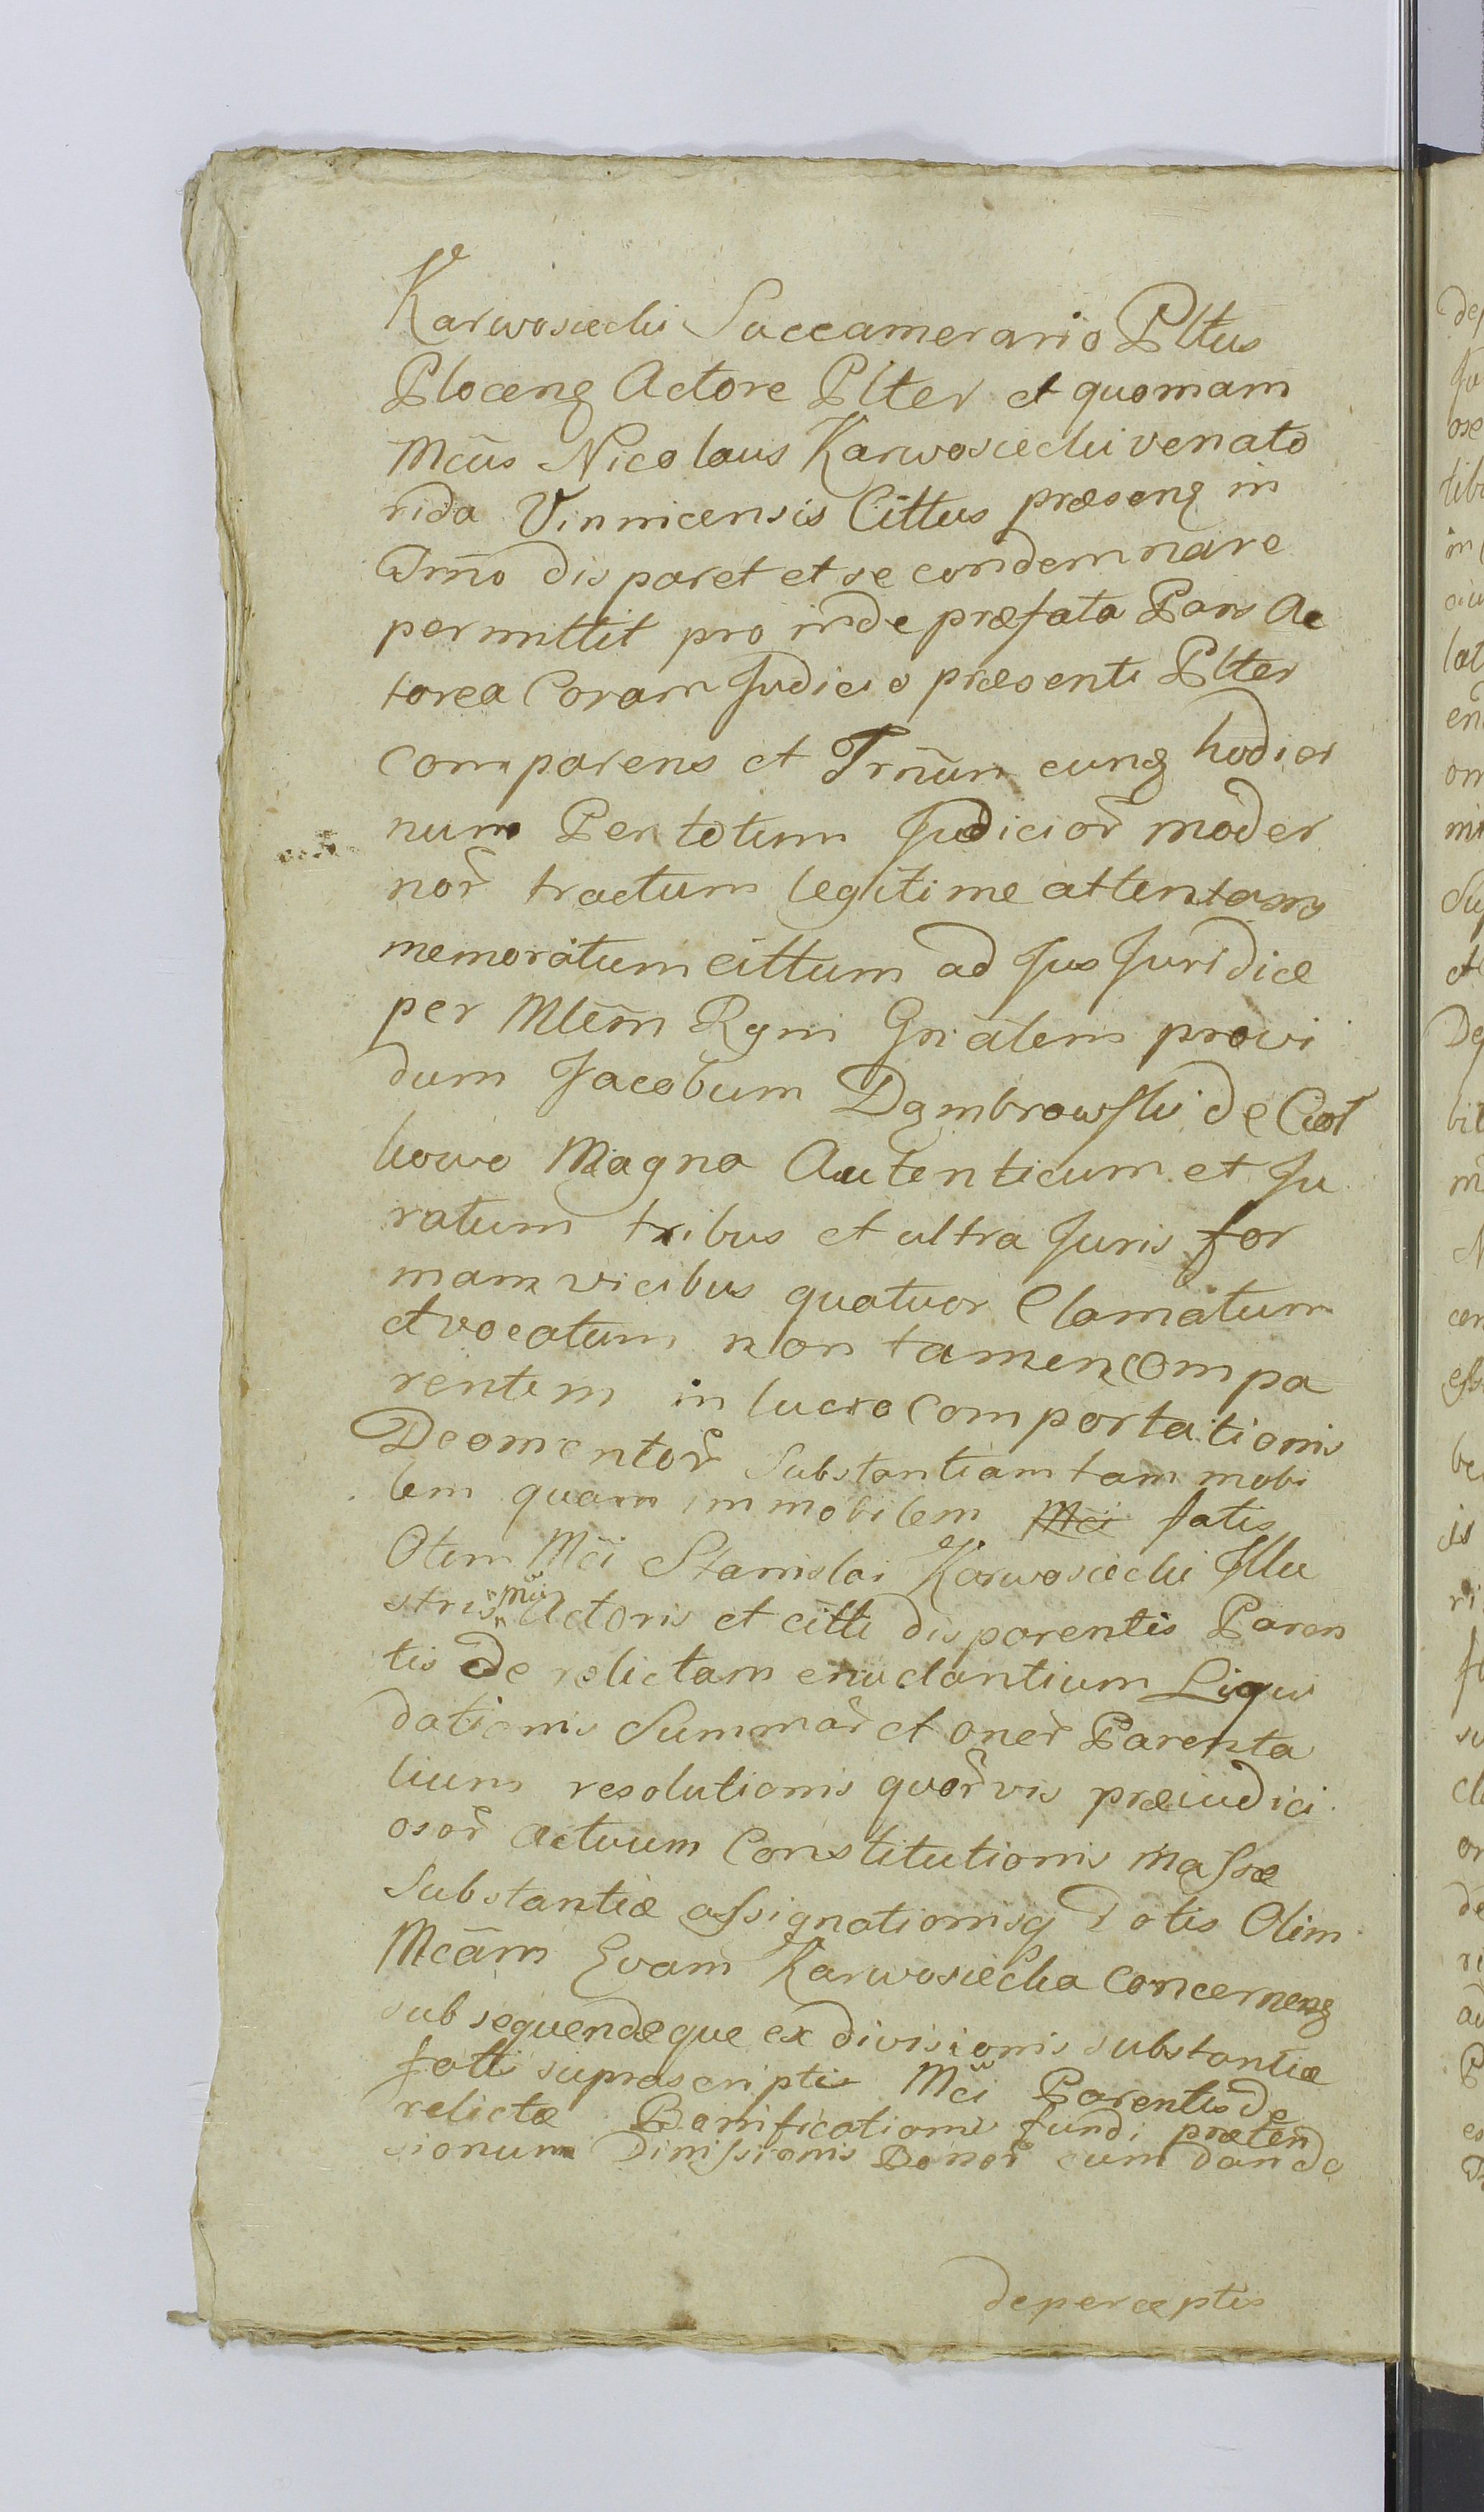 Karwosiecki Succamerario Pltus
Plocens Actore Plter et quoniam
Mcus Nicolaus Karwosiecki venato
rida Vinnicensis Cittus præsens in
Tmno disparet et se condemnare
permittit pro inde præfata Pars Ac
torea Coram Judicio præsenti Plter
comparens et Tmnum eung hodier
num Per totum Judicior moder
nor tractum legitime attentans
memoratum cittum ad Jus Juridice
per Mlem Rgni Gnalem provi
dum Jacobum Dąmbrowski de
kowo Magna Autenticum et Ju
ratum tribus et ultra Juris for
mam vicibus quatuor Clamatum
et vocatum non tamen compa
rentem in lucro Comportationis
Dcomentor Substantiam tam mobi
lem quam immobilem Mci fatis
Olim Mci Stanislai Karwosiecki Illu
stris Mci Actoris et citti disparentis Paren
tis de relictam enuclantium Liqui
dationis Summar et oner Parenta
lium resolutionis quorvis præiudici
osor actuum Constitutionis massæ
Substantiæ assignationisq Dotis Olim
Mcam Evam Karwosiecka concernens
subsequendæque ex divisionis substantiæ
fatti suprascripti Mci Parentis de
relictæ Bonificationis fundi præten
sionum Dimissionis Bonor cum danda
de perceptis